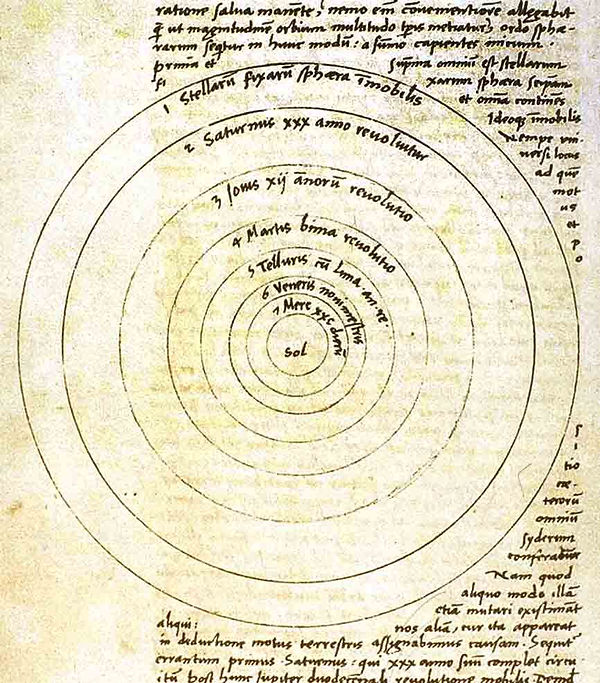 ratione salua manẽte, nemo em̃ cõuenientiorẽ allegabit
q̃ ut magnitudinẽ orbium multitudo tp̃is metiatur, ordo sphæ-
rarum seq̃tur in hunc modũ: a sum̃o capientes initium.
prima et
fi
Suprema omniũ est stellarum
xarum sphæra seip̃am
et omñia continẽs
Ideoq̨ im̃obilis
Nempe uni
uersi locus
ad quẽ
mot
us
et
p
o
1 Stellarũ fixarũ sphæra im̃obilis
2 Saturnus xxx anno reuoluitur
3 Iouis xij annorũ reuolutio
4 Martis bima reuolutio
5 Telluris cũ Luna an. re.
6 Veneris nonimestris
7 Merc xxc dierũ
Sol
s
i
tio
cæ-
terorũ
omniũ
syderum
conferatur
Nam quod
aliquo modo illã
etiã mutari existimãt
aliqui:
nos aliã, cur ita appareat
in deductione motus terrestris assignabimus causam. Sequit᷑
errantium primus Saturnus: qui xxx anno suũ complet circu
itũ post hunc Iupiter duodecennali reuolutione mobilis. Deinde